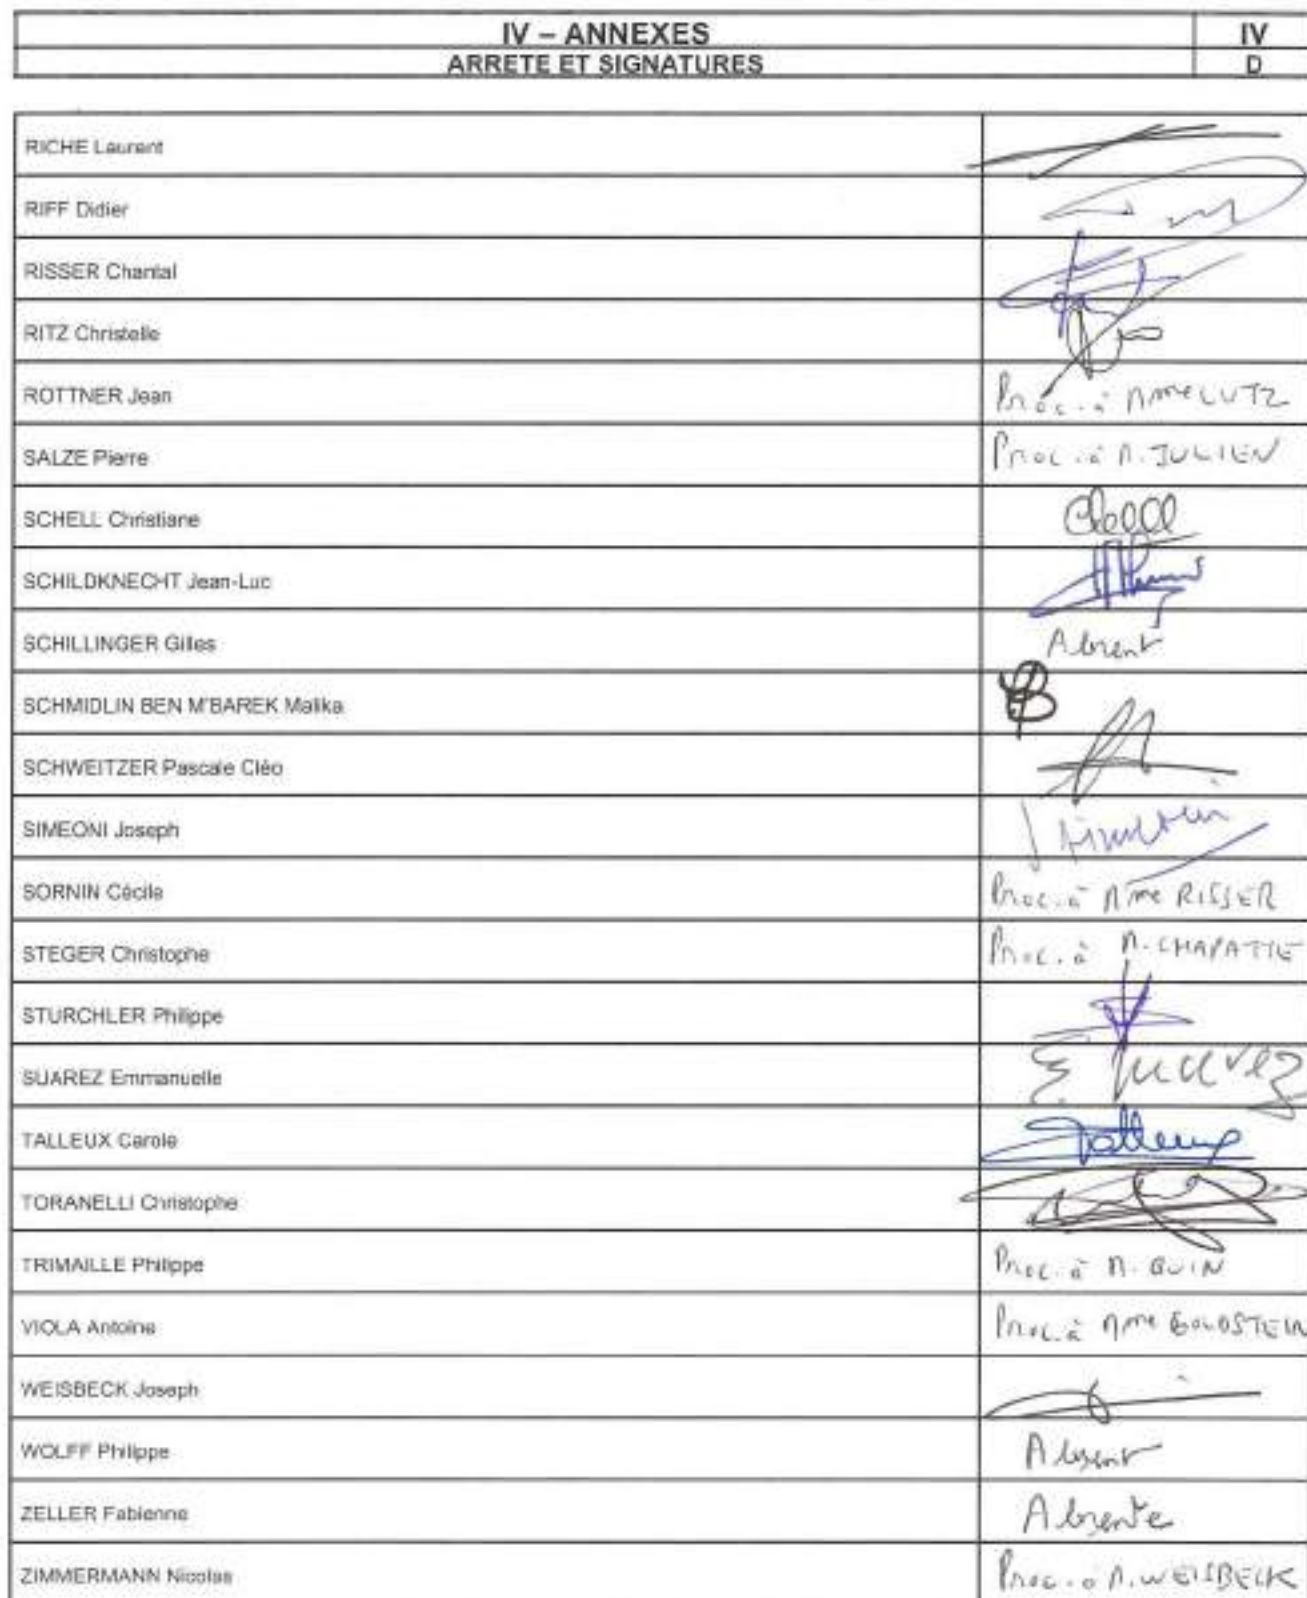 IV – ANNEXES IV
ARRETE ET SIGNATURES D
RICHE Laurent
RIFF Didier
RISSER Chantal
RITZ Christelle
ROTTNER Jean Proc. à Mme LUTZ
SALZE Pierre Proc. à M. JULIEN
SCHELL Christiane
SCHILDKNECHT Jean-Luc
SCHILLINGER Gilles Absent
SCHMIDLIN BEN M'BAREK Malika
SCHWEITZER Pascale Cléo
SIMEONI Joseph
SORNIN Cécile Proc. à Mme RISSER
STEGER Christophe Proc. à M. CHAPATTE
STURCHLER Philippe
SUAREZ Emmanuelle E. Suarez
TALLEUX Carole Talleux
TORANELLI Christophe
TRIMAILLE Philippe Proc. à M.
VIOLA Antoine Proc. à Mme GOLDSTEIN
WEISBECK Joseph
WOLFF Philippe Absent
ZELLER Fabienne Absente
ZIMMERMANN Nicolas Proc. à M. WEISBECK